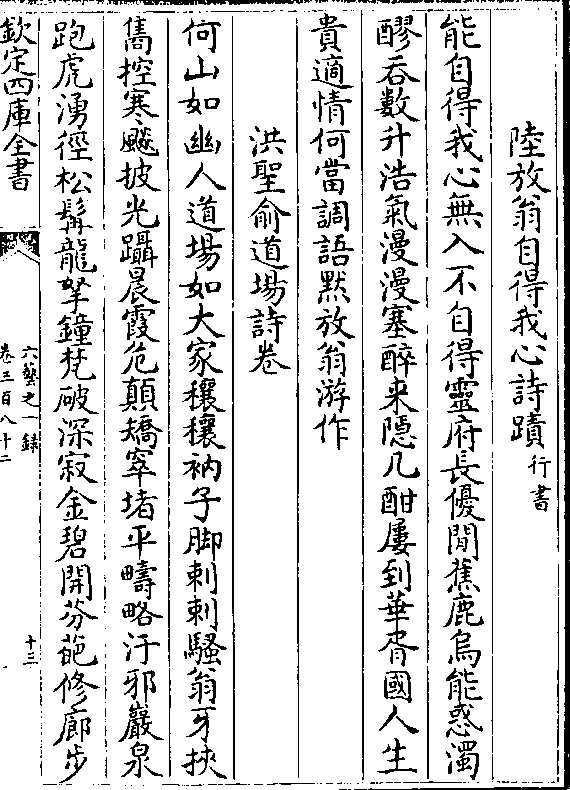 陸放翁自得我心詩蹟行書
能自得我心無入不自得靈府長優閒蕉鹿烏能惑濁
醪吞數升浩氣漫漫塞醉来隱几酣屢到華胥國人生
貴適情何當調語黙放翁游作
洪聖俞道場詩卷
何山如幽人道場如大家穰穰衲子脚刺刺騷翁牙挾
雋控寒飈披光躡晨霞危顛矯窣堵平疇略汙邪巖泉
跑虎湧徑松髯龍拏鐘梵破深寂金碧開芬葩修廊步
欽定四庫全書
六藝之一録
卷三百八十二
十三